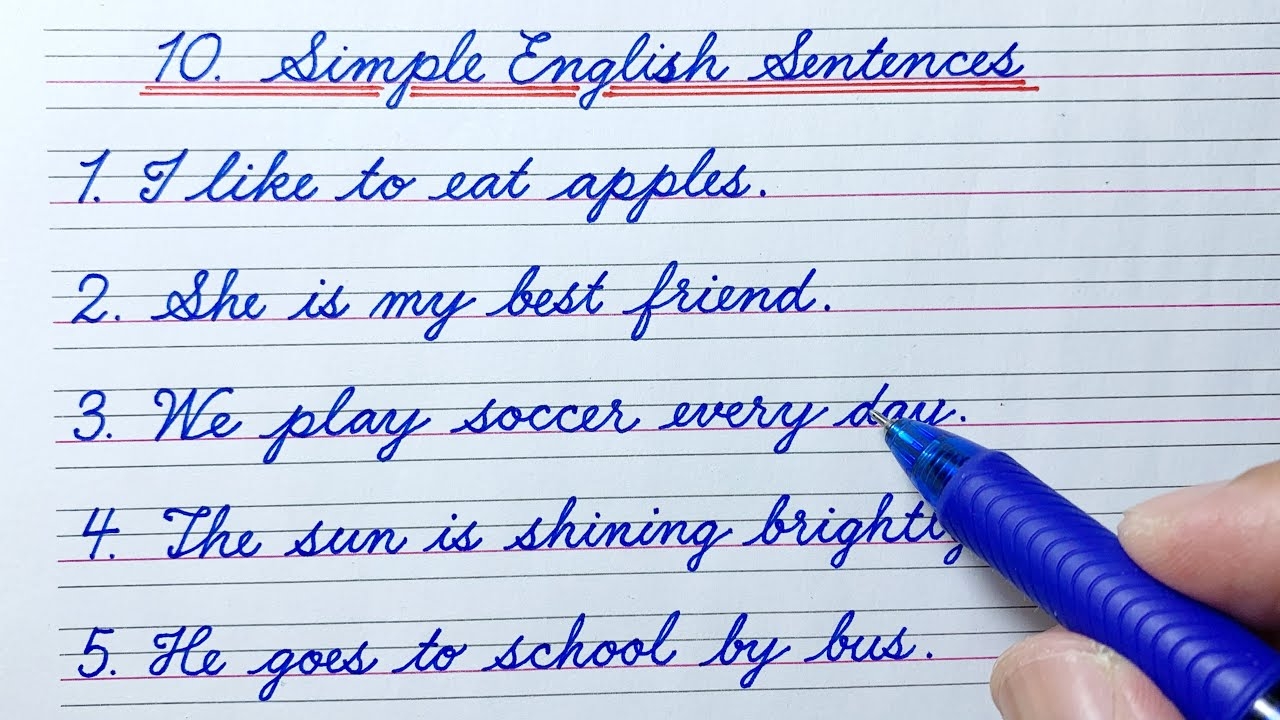 10. Simple English Sentences
1. I like to eat apples.
2. She is my best friend.
3. We play soccer every day.
4. The sun is shining brightly
5. He goes to school by bus.